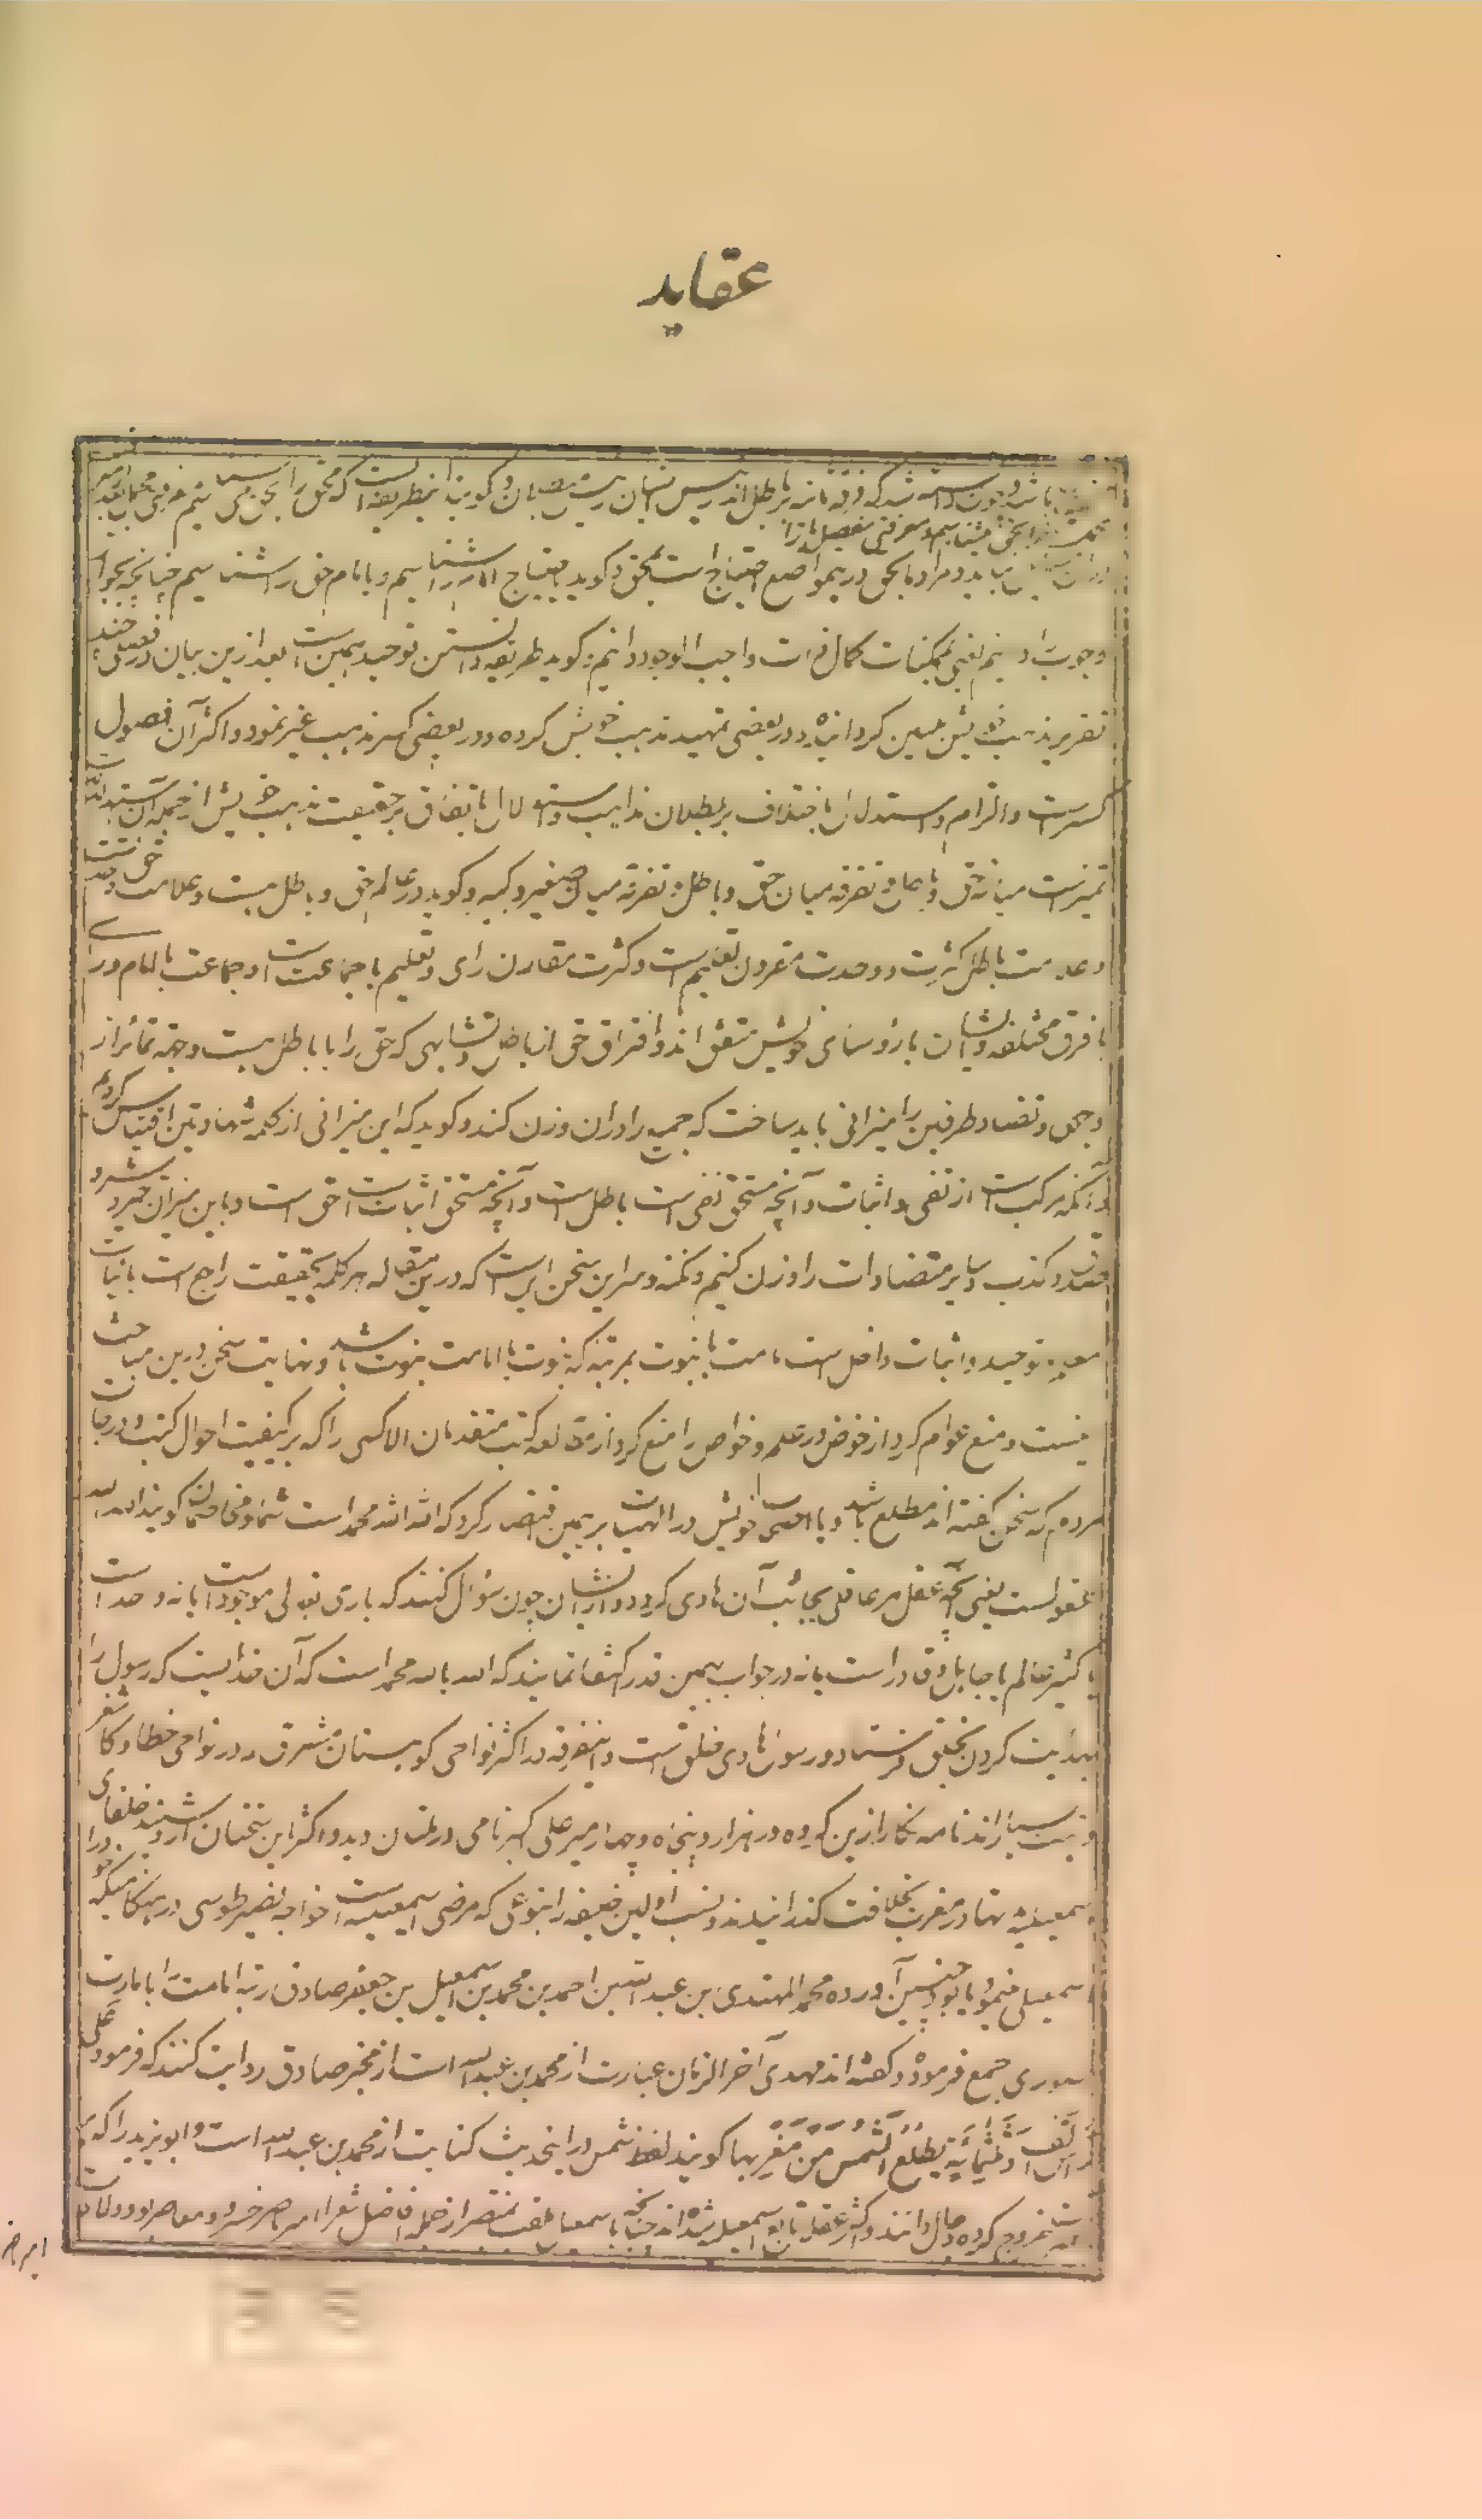 عقاید
باشد و چون دانسته شد که فرقه مانه بر باطل اند رئیس ایشان رئیس مبطلان و گویند این طریقه است که محق را بحق می شناسیم معرفتی مجملا بعد
بحق می شناسیم معرفتی مفصل
و مراد ما بحق درین مواضع احتیاج است بمحق و گوید باحتیاج امام را شناسیم و بامام حق را شناسیم چنانچه بجواز
وجوب را دانیم یعنی بممکنات کمال ذات واجب الوجود دانیم گوید طریقه دانستن توحید همین است بعد ازین بیان فصلی چند در
تقریر مذهب خویش مبین کردانیده در بعضی تمهید مذهب خویش کرده و در بعضی کسر مذهب غیر نمود و اکثر آن فصول
کسر است و الزام و استدلال باختلاف بر بطلان مذاهب و استدلال باتفاق بر حقیقت مذهب خویش از جمله آن
تمیز است میانه حق و باطل و تفرقه میان حق و باطل و تفرقه میان صغیر و کبیر و گوید در عالم حق و باطل هست و علامت حق وحدت است
و علامت باطل کثرت و وحدت مقرون تعلیم است و کثرت مقارن رای و تعلیم با جماعت است و جماعت با امام و رای
با فرق مختلفه و ایشان با رؤسای خویش متفق اند و افتراق حق از باطل و تشابهی که حق را با باطل هست و جهه تمائز از
وجهی و تضاد طرفین را میزانی باید ساخت که جمیع را در آن وزن کنند و گوید که این میزانی از کلمه شهادتین اقتباس کردیم
و آنکه مرکب است از نفی و اثبات و آنچه مستحق نفی است باطل است و آنچه مستحق اثبات است حق است و باین میزان خیر و شر و
صدق و کذب و سایر متضادات را وزن کنیم و نکته و سر این سخن این است که درین مقاله هر کلمه بحقیقت راجع است باثبات
معلم و توحید و اثبات داخل است امامت با نبوت بمرتبه که نبوت با امامت نبوت باشد و نهایت سخن درین مباحث
نیست و منع عوام کرد از خوض در علم و خواص را منع کرد از مطالعه کتب متقدمان الا کسی را که بر کیفیت احوال کتب و درجات
مردم که سخن گفته اند مطلع باشد و با اصحاب خویش در الهیات بر همین اقتصار کرد که الله الله محمد است شما و مخاصمان گویند الله اله
عقول است یعنی آنچه عقل هر عاقلی بجانب آن هادی کردد و از ایشان چون سؤال کنند که باری تعالی موجود است یا نه واحد است
یا کثیر عالم یا جاهل قادر است یا نه در جواب بهمین قدر اکتفا نمایند که الله ما اله محمد است که آن خدائیست که رسول را
بهدایت کردن بخلق فرستاد و رسول هادی خلق است و این فرقه در اکثر نواحی کوهستان مشرق و در نواحی خطا و کاشغر
و تبت بسیار اند نامه نگار ازین گروه در هزار و پنجاه و چهار میر علی اکبر نامی در ملتان دید و اکثر این سخنان از و شنید خلفای
اسمعیلیه تنها در مغرب بخلافت گذرانیدند و نسب اولین خلیفه را بنوعی که مرضی اسمعیلیه است خواجه نصیر طوسی در هنگامیکه خود را
اسمعیلی مینمود چنین آورده محمد المهتدی بن عبد الله بن احمد بن محمد بن اسمعیل بن جعفر صادق رتبه امامت را با امارت
صوری جمع فرموده و گفته اند مهدی آخر الزمان عبارت از محمد بن عبد الله است از مخبر صادق روایت کنند که فرمود علی
رأس الف و ثلثمائة تطلع الشمس من مغربها گویند لفظ شمس در این حدیث کنایت از محمد بن عبد الله است و ابو یزید را که
خروج کرده دجال دانند و اکثر عقلا تابع اسمعیلیه شده اند چنانکه اسمعیلی منتصر از جمله افاضل شعرا امیر ناصر خسرو معاصر او